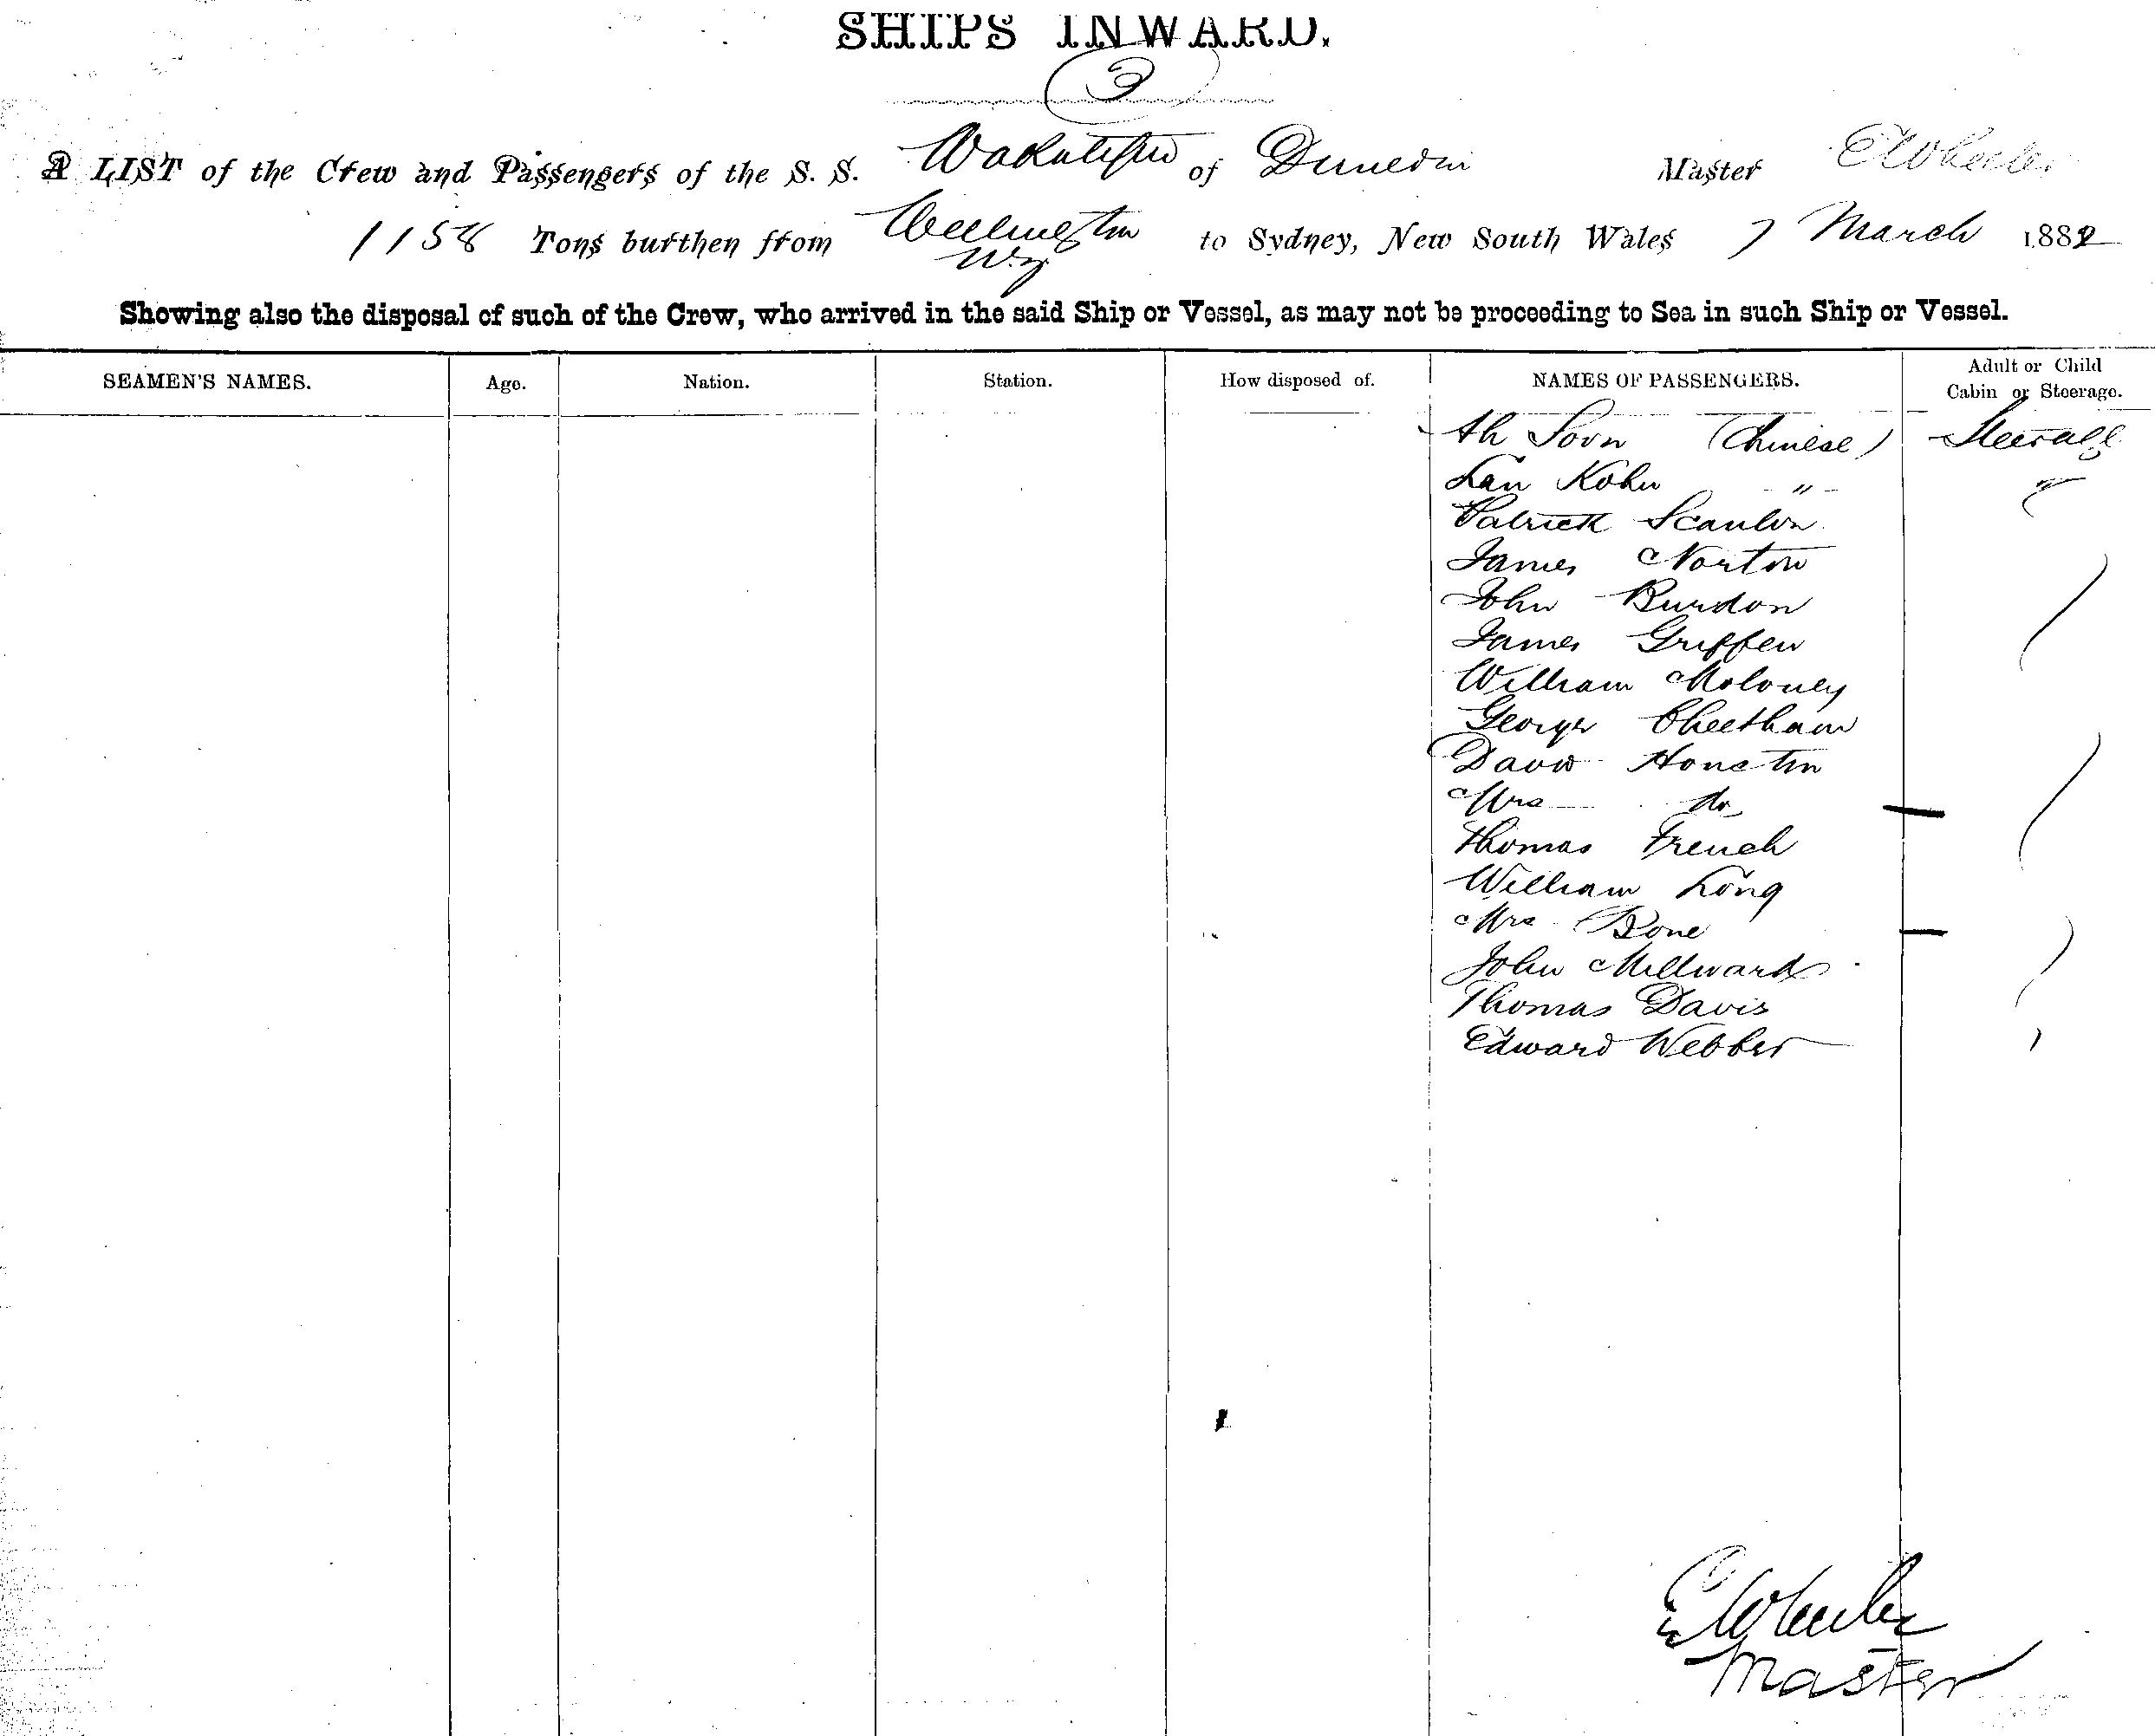 SHIPS INWARD.
3
A LIST of the Crew and Passengers of the S. S. Wakatipu of Dunedin Master E Wheeler
1158 Tons burthen from Wellington to Sydney, New South Wales 7 March 1882
N.Z.
Showing also the disposal of such of the Crew, who arrived in the said Ship or Vessel, as may not be proceeding to Sea in such Ship or Vessel.
SEAMEN'S NAMES. Age. Nation. Station. How disposed of. NAMES OF PASSENGERS. Adult or Child Cabin or Steerage.
Ah Soon (Chinese) Steerage
Lan Kohu "
Patrick Scanlon
James Norton
John Burdon
James Griffen
William Moloney
George Cheetham
David Houston
Mrs do
Thomas French
William Long
Mrs Bone
John Millward
Thomas Davis
Edward Webber
E Wheeler
Master